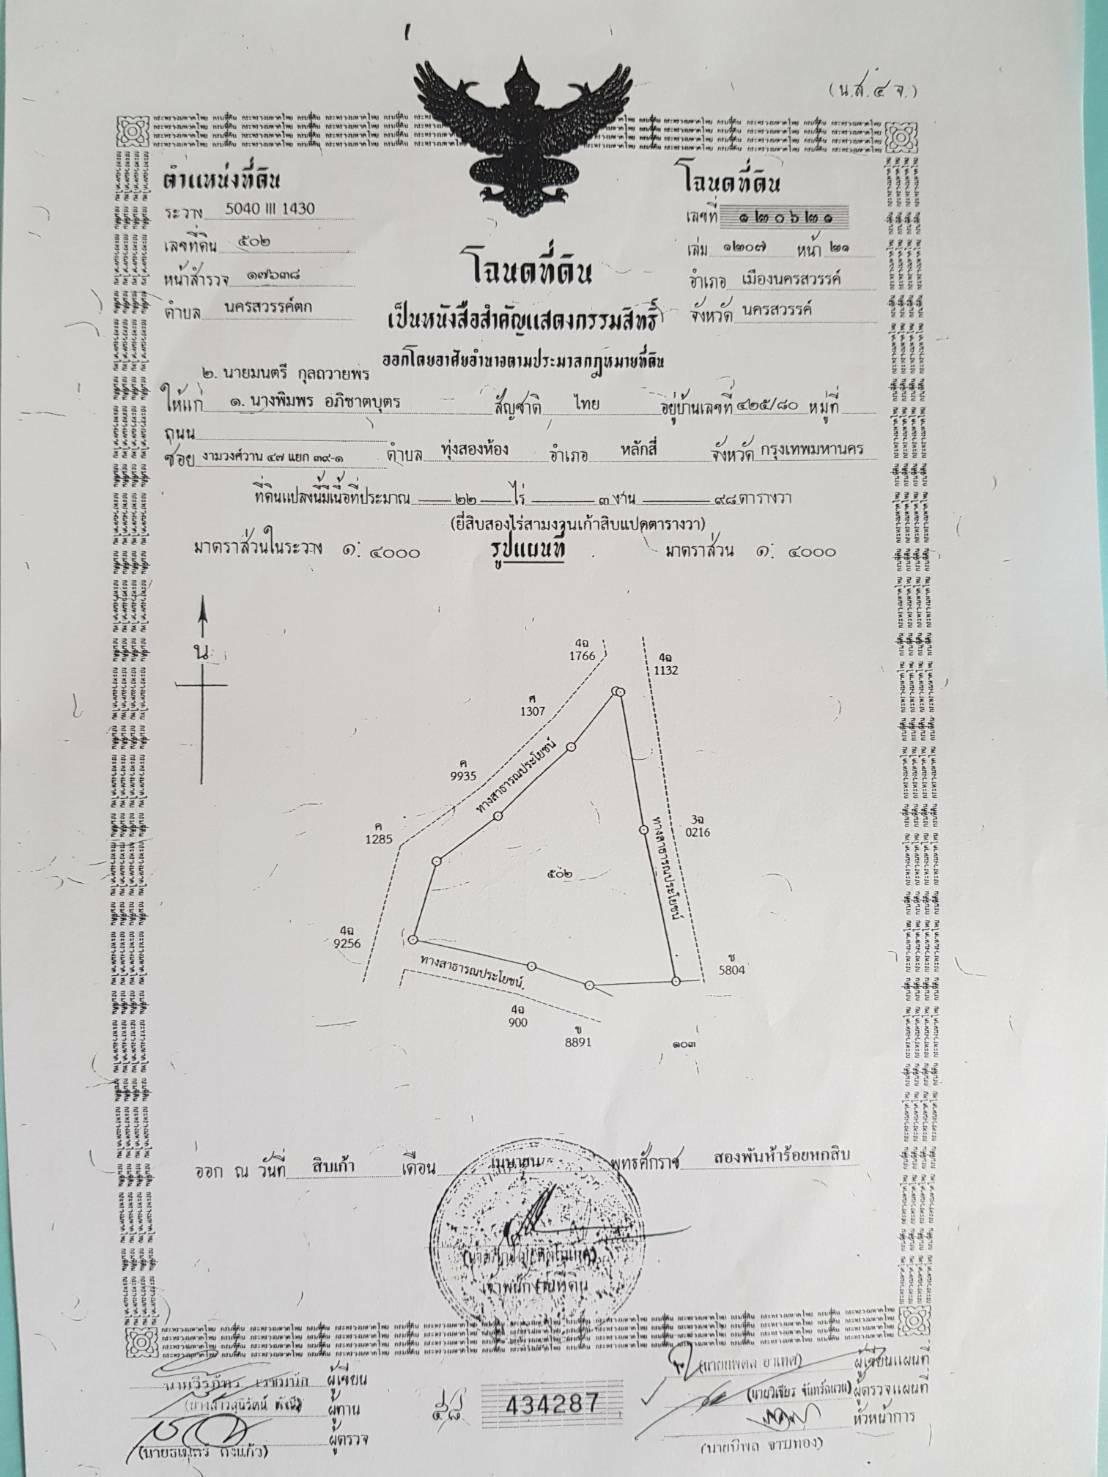 (น.ส.๔ จ.)
ตำแหน่งที่ดิน
ระวาง 5040 III 1430
เลขที่ดิน ๕๐๒
หน้าสำรวจ ๑๗๖๓๘
ตำบล นครสวรรค์ตก
โฉนดที่ดิน
เลขที่ ๑๒๐๖๒๑
เล่ม ๑๒๐๗ หน้า ๒๑
อำเภอ เมืองนครสวรรค์
จังหวัด นครสวรรค์
โฉนดที่ดิน
เป็นหนังสือสำคัญแสดงกรรมสิทธิ์
ออกโดยอาศัยอำนาจตามประมวลกฎหมายที่ดิน
๒. นายมนตรี กุลถวายพร
ให้แก่ ๑. นางพิมพร อภิชาตบุตร สัญชาติ ไทย อยู่บ้านเลขที่ ๔๒๕/๘๐ หมู่ที่
ถนน
ซอย งามวงศ์วาน ๔๗ แยก ๓๙-๑ ตำบล ทุ่งสองห้อง อำเภอ หลักสี่ จังหวัด กรุงเทพมหานคร
ที่ดินแปลงนี้มีเนื้อที่ประมาณ ๒๒ ไร่ ๓ งาน ๙๘ ตารางวา
(ยี่สิบสองไร่สามงานเก้าสิบแปดตารางวา)
มาตราส่วนในระวาง ๑: ๔๐๐๐ รูปแผนที่ มาตราส่วน ๑: ๔๐๐๐
น
4ฉ
1766
4ฉ
1132
ศ
1307
ค
9935
ทางสาธารณประโยชน์
ศ
1285
3ฉ
0216
ทางสาธารณประโยชน์
๕๐๒
4ฉ
9256
ทางสาธารณประโยชน์
ช
5804
4ฉ
900
ข
8891
๑๐๓
ออก ณ วันที่ สิบเก้า เดือน เมษายน พุทธศักราช สองพันห้าร้อยหกสิบ
เจ้าพนักงานที่ดิน
ผู้เขียน
ผู้ทาน
ผู้ตรวจ
434287
ผู้เขียนแผนที่
ผู้ตรวจแผนที่
หัวหน้าการ